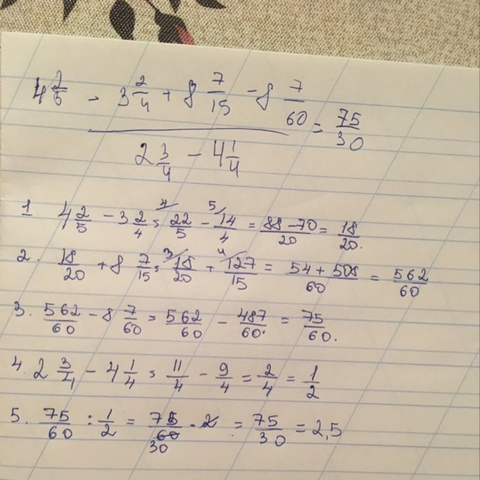 4 2/5 - 3 2/4 + 8 7/15 - 8 7/60
2 3/4 - 4 1/4 = 75/30
1 4 2/5 - 3 2/4 = 4/ 22/5 - 5/ 14/4 = 88-70/20 = 18/20.
2. 18/20 + 8 7/15 = 3/ 18/20 + 4/ 127/15 = 54+508/60 = 562/60
3. 562/60 - 8 7/60 = 562/60 - 487/60. = 75/60.
4. 2 3/4 - 4 1/4 = 11/4 - 9/4 = 2/4 = 1/2
5. 75/60 : 1/2 = 75/60 30 · 2 = 75/30 = 2,5